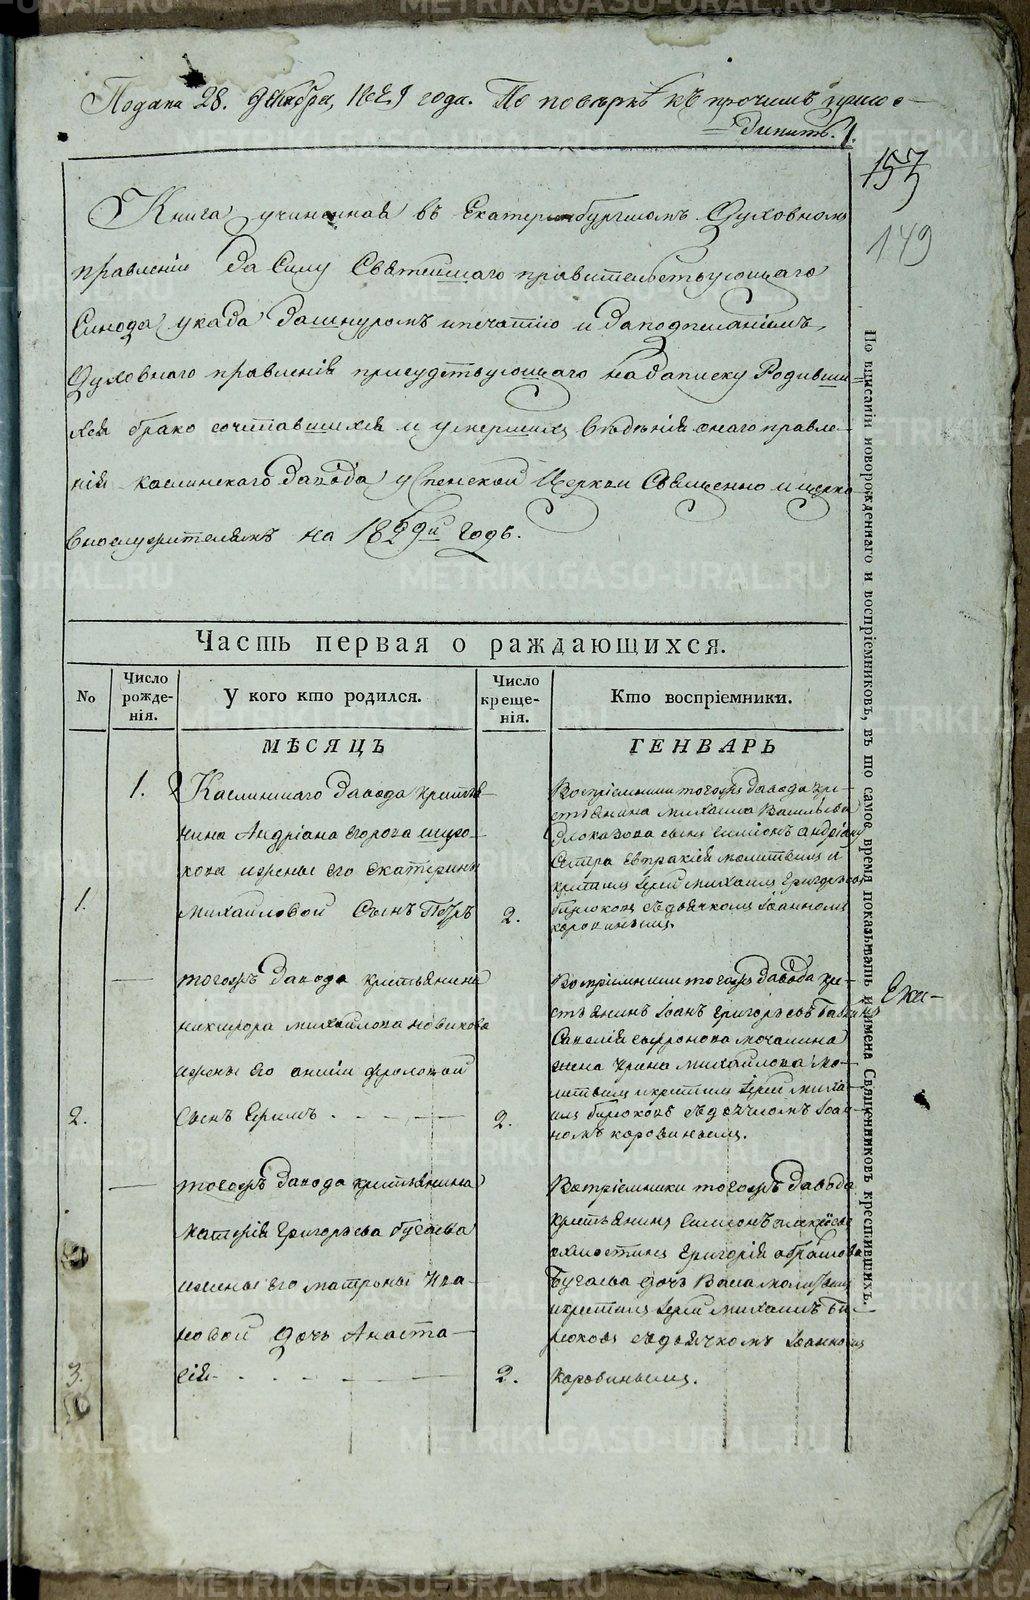 Подана 28. Декабря, 1829 года. По повѣркѣ къ прочимъ присо-
=динить. 1.
157
149
Книга учиненная въ Екатеринбургскомъ Духовномъ
правленіи За Силу Святейшаго правительствующаго
Синода указа Зашнуромъ ипечатью и Заподписаніемъ,
Духовнаго правленія присудствующаго наЗаписку Родивши=
хся брако сочитавшихся и умершихъ вѣденія онаго правле-
нія каслинскаго Завода Успенской Церкви Священно и церко
вно служителямъ на 1829й годъ.
Часть первая о раждающихся.
No
Число рожде-нія.
У кого кто родился.
Число креще-нія.
Кто воспріемники.
МѢСЯЦЪ
ГЕНВАРЬ
1. Каслинскаго Завода крестья-
нина Андріана Егорова широ-
кова ижены его Екатерины
1. михайловой Сынъ Петръ 2.
Воспріемники тогожъ Завода кре-
стьянина михаила Васильева
сынъ симионъ андріана
Сестра Евпраксія молитвилъ и
крестилъ Іерей михаилъ Григорьевъ
Бирюковъ съдьячкомъ Іоанномъ
коровинымъ.
тогожъ Завода крестьянина
никифора михайлова новикова
ижены его анны фроловой
2. Сынъ Ефимъ 2.
Воспріемники тогожъ Завода кре-
стьянинъ Іоанъ Григорьевъ
софронова мочалина
жена Ирина михайлова мо-
литвилъ икрестилъ Іерей миха-
илъ бирюковъ съдьячкомъ Іоан-
номъ коровинымъ.
тогожъ Завода крестьянина
Матвѣя Григорьева бугаева
ижены его матрены Ива-
новой Дочь Анаста-
3. сія 2.
Воспріемники тогожъ Завода
крестьянинъ симионъ алексѣевъ
Григорія абрамова
Бугаева дочь Васса молитвилъ
икрестилъ Іерей михаилъ би-
рюковъ съдьячкомъ Іоанномъ
Коровинымъ.
По вписаніи новорожденнаго и воспріемниковъ, въ то самое время показывать и имена Священниковъ крестившихъ.
Ека-
METRIKI.GASO-URAL.RU